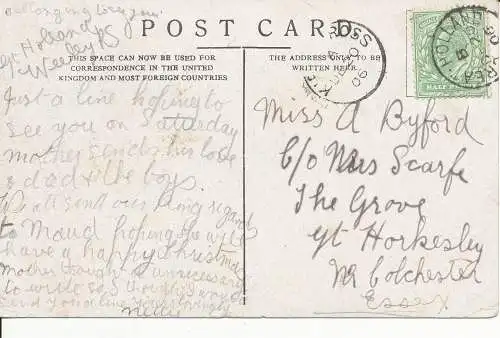 Gt Holland
Weeley RS
POST CARD
THIS SPACE CAN NOW BE USED FOR
CORRESPONDENCE IN THE UNITED
KINGDOM AND MOST FOREIGN COUNTRIES
THE ADDRESS ONLY TO BE
WRITTEN HERE.
Just a line hoping to
see you on Saturday
mother sends her love
& dad & the boys.
We all send our kind regards
to Maud hoping she will
have a happy Christmas
Mother thought it unnecessary
to write so I thought I would
send you a line Yours lovingly
Nellie
Miss A Byford
C/o Mrs Scarfe
The Grove
Gt Horkesley
Nr Colchester
Essex
HOLLAND
HALF PENNY